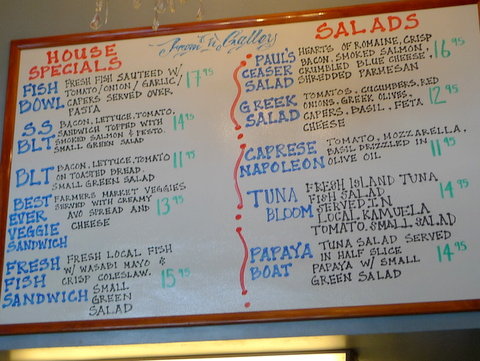 From th Gallery
HOUSE
SPECIALS
FISH
BOWL
FRESH FISH SAUTEED W/
TOMATO/ONION/GARLIC/
CAPERS SERVED OVER
PASTA
17.95
SS
BLT
BACON, LETTUCE, TOMATO,
SANDWICH TOPPED WITH
SMOKED SALMON & PESTO.
SMALL GREEN SALAD
14.95
BLT
BACON, LETTUCE, TOMATO
ON TOASTED BREAD.
SMALL GREEN SALAD
11.95
BEST
EVER
VEGGIE
SANDWICH
FARMERS MARKET VEGGIES
SERVED WITH CREAMY
AVO SPREAD AND
CHEESE
13.95
FRESH
FISH
SANDWICH
FRESH LOCAL FISH
W/ WASABI MAYO &
CRISP COLESLAW.
SMALL
GREEN
SALAD
15.95
SALADS
PAUL'S
CEASER
SALAD
HEARTS OF ROMAINE, CRISP
BACON, SMOKED SALMON,
CRUMBLED BLUE CHEESE,
SHREDDED PARMESAN
16.95
GREEK
SALAD
TOMATOS, CUCUMBERS, RED
ONIONS, GREEK OLIVES,
CAPERS, BASIL, FETA
CHEESE
12.95
CAPRESE
NAPOLEON
TOMATO, MOZZARELLA,
BASIL DRIZZLED IN
OLIVE OIL
11.95
TUNA
BLOOM
FRESH ISLAND TUNA
FISH SALAD
SERVED IN
LOCAL KAMUELA
TOMATO. SMALL SALAD
14.95
PAPAYA
BOAT
TUNA SALAD SERVED
IN HALF SLICE
PAPAYA W/ SMALL
GREEN SALAD
14.95